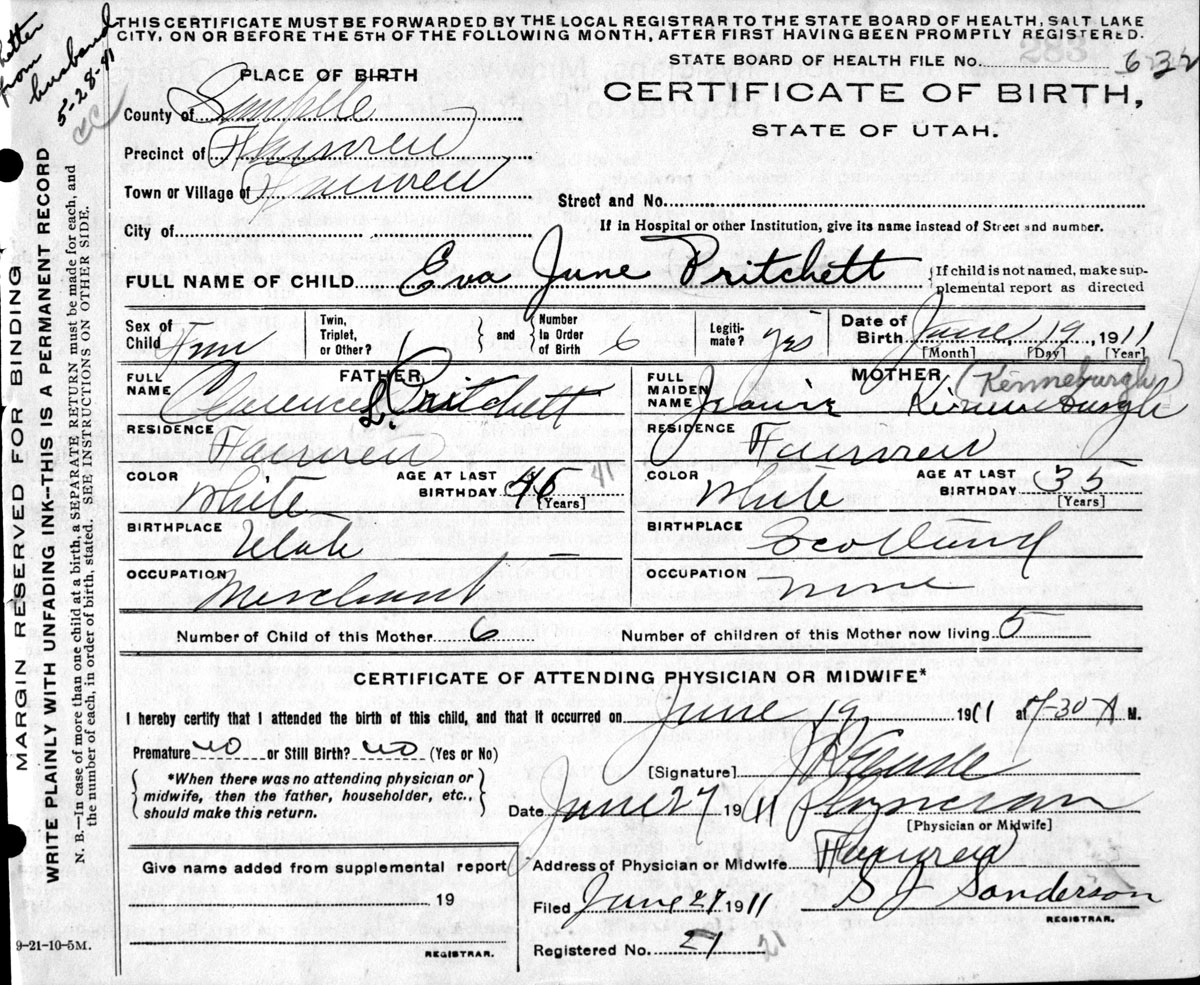 THIS CERTIFICATE MUST BE FORWARDED BY THE LOCAL REGISTRAR TO THE STATE BOARD OF HEALTH, SALT LAKE
CITY, ON OR BEFORE THE 5TH OF THE FOLLOWING MONTH, AFTER FIRST HAVING BEEN PROMPTLY REGISTERED.
letter
from
husband
5-28-41
STATE BOARD OF HEALTH FILE No. 632
CERTIFICATE OF BIRTH,
STATE OF UTAH.
PLACE OF BIRTH
County of Sanpete
Precinct of Fairview
Town or Village of Fairview
Street and No.
City of
If in Hospital or other Institution, give its name instead of Street and number.
FULL NAME OF CHILD Eva June Pritchett
{If child is not named, make sup-
plemental report as directed
Sex of Child Fem
Twin, Triplet, or Other?
} and {
Number in Order of Birth 6
Legiti-mate? yes
Date of Birth June 19 1911
[Month] [Day] [Year]
FATHER
FULL NAME Clarence L. Pritchett
RESIDENCE Fairview
COLOR White
AGE AT LAST BIRTHDAY 41
[Years]
BIRTHPLACE Utah
OCCUPATION Merchant
MOTHER
(Kenneburgh)
FULL MAIDEN NAME
RESIDENCE Fairview
COLOR White
AGE AT LAST BIRTHDAY 35
[Years]
BIRTHPLACE Scotland
OCCUPATION none
Number of Child of this Mother 6
Number of children of this Mother now living 5
CERTIFICATE OF ATTENDING PHYSICIAN OR MIDWIFE*
I hereby certify that I attended the birth of this child, and that it occurred on June 19 1911 at 7-30 A M.
Premature no or Still Birth? no (Yes or No)
{*When there was no attending physician or
midwife, then the father, householder, etc.,
should make this return.}
[Signature]
Date June 27 1911 Physician
[Physician or Midwife]
Give name added from supplemental report
19
REGISTRAR.
Address of Physician or Midwife Fairview
Filed June 27 1911 S J Sanderson
REGISTRAR.
Registered No. 27 21
9-21-10-5M.
MARGIN RESERVED FOR BINDING
WRITE PLAINLY WITH UNFADING INK--THIS IS A PERMANENT RECORD
N. B.—In case of more than one child at a birth, a SEPARATE RETURN must be made for each, and
the number of each, in order of birth, stated. SEE INSTRUCTIONS ON OTHER SIDE.